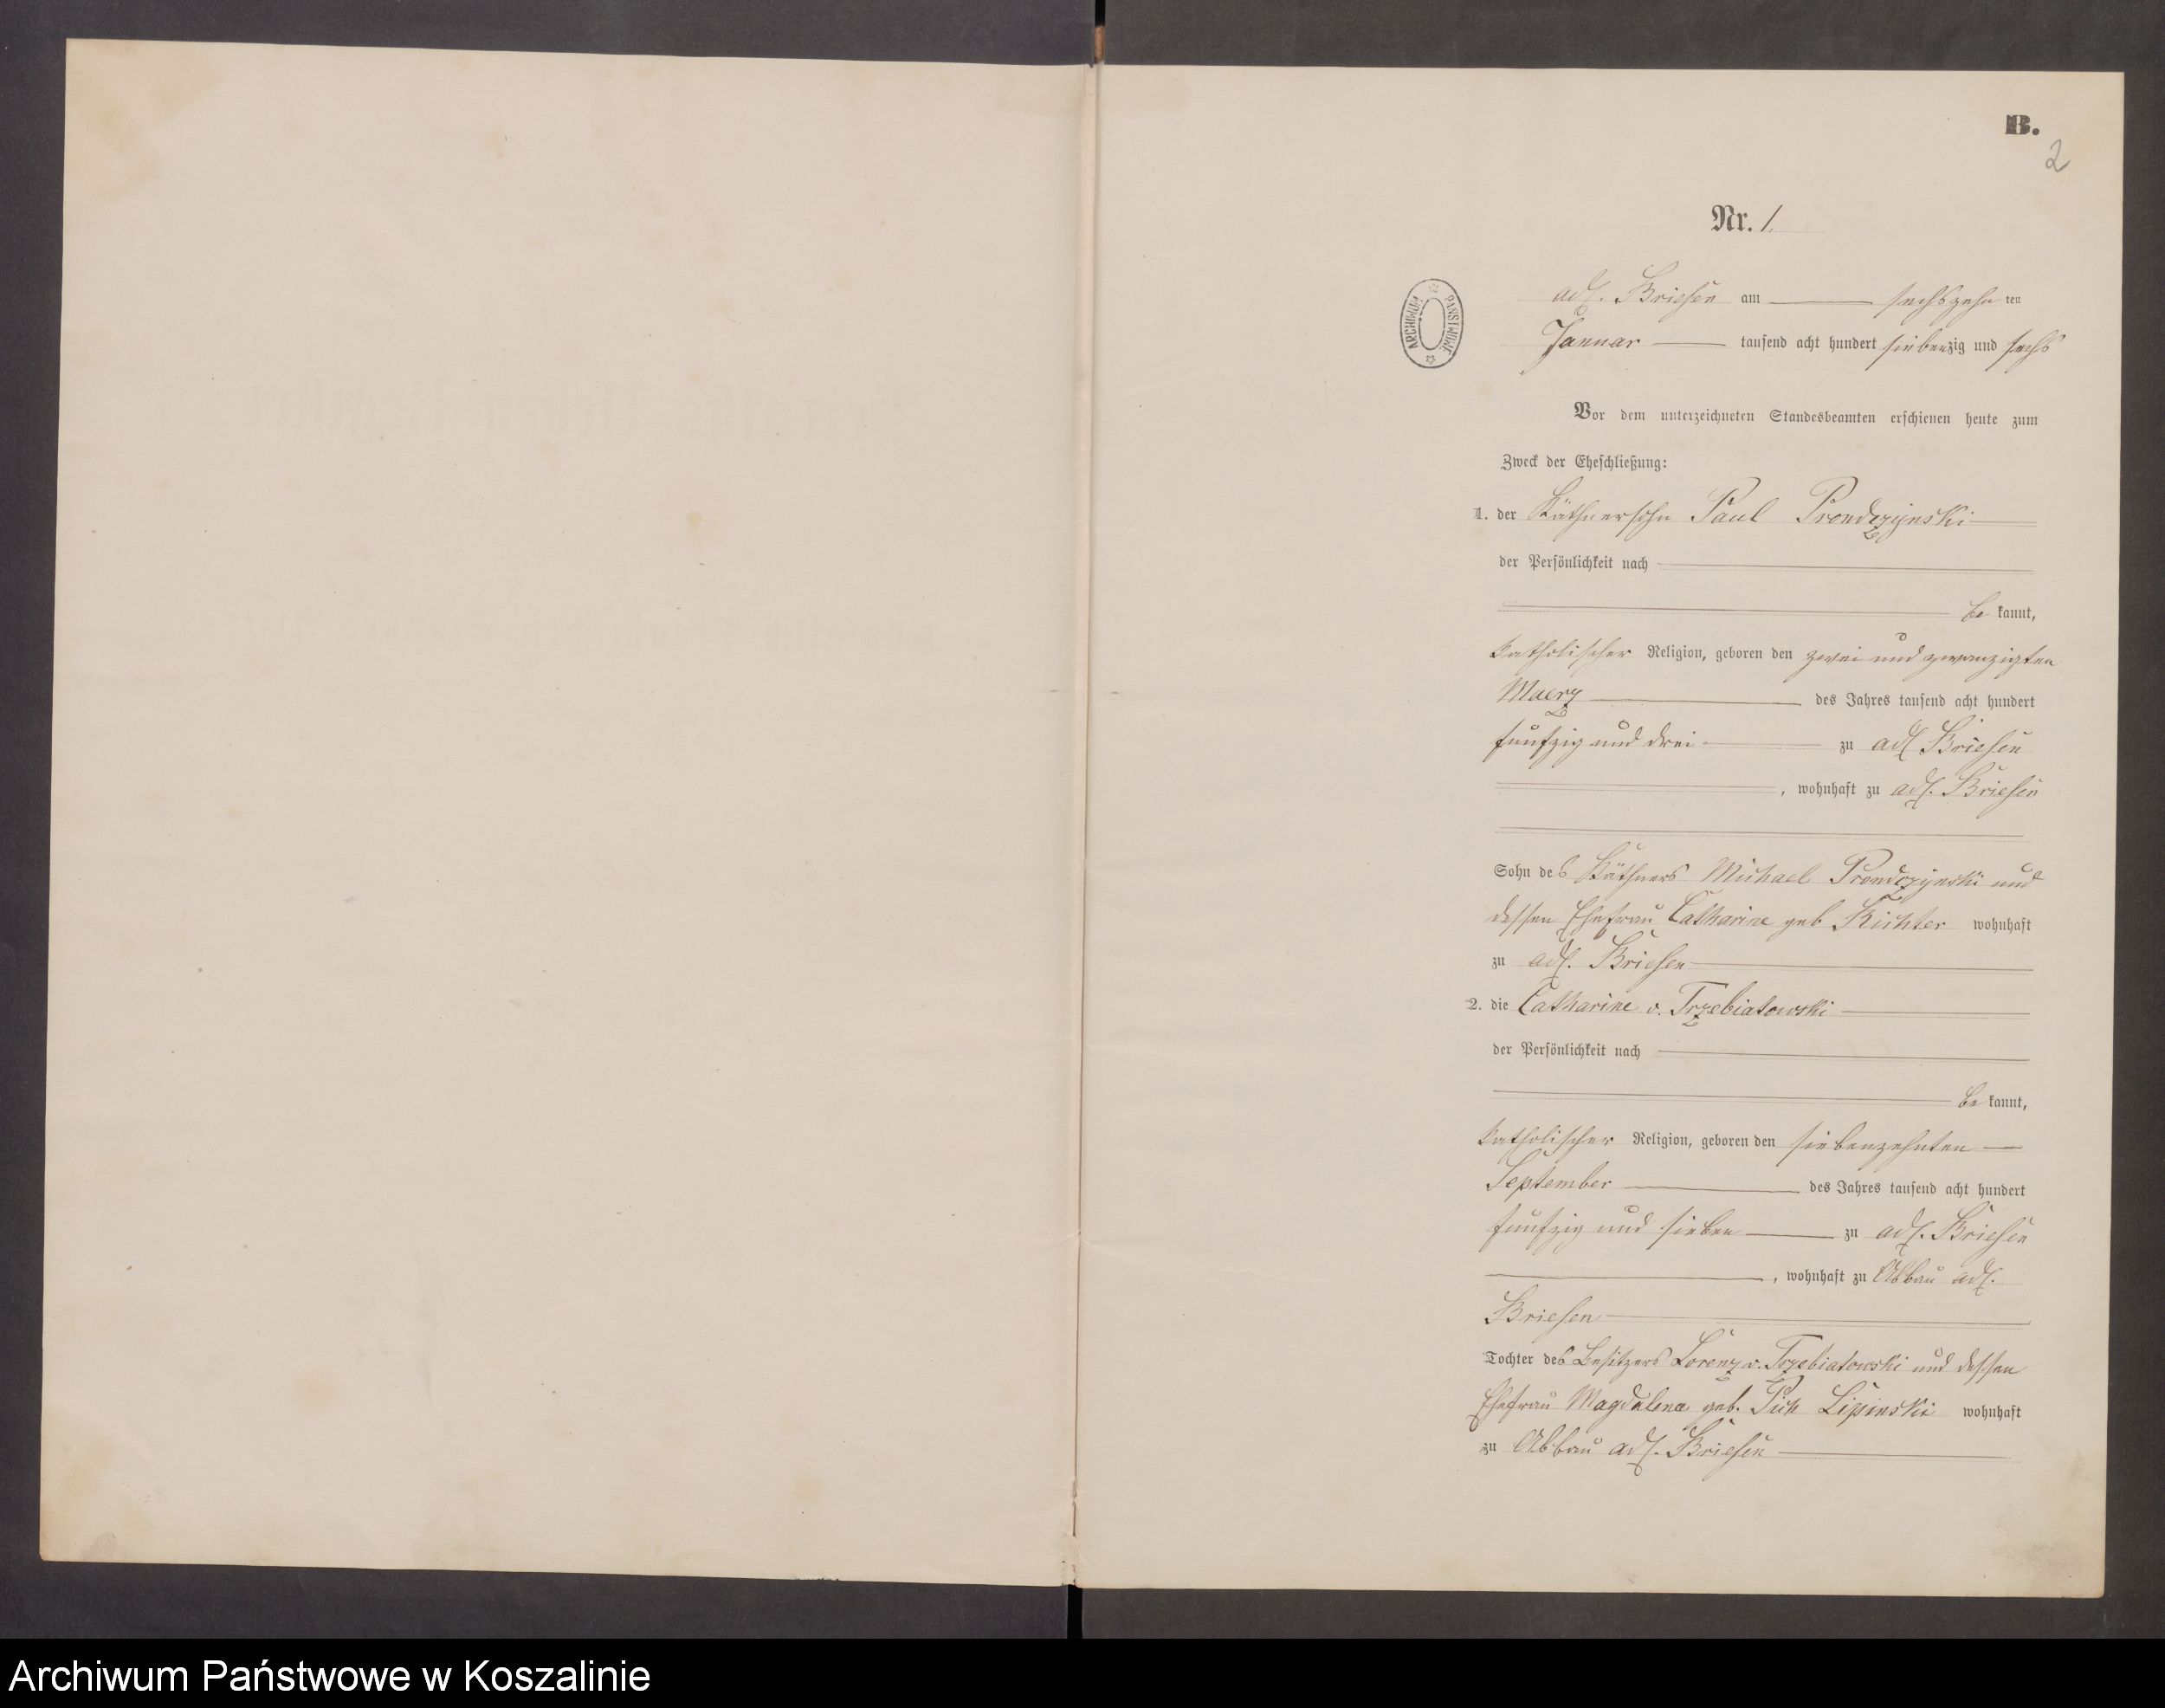 B.
2
Nr. 1.
ARCHIWUM PAŃSTWOWE
adl. Briesen am sechszehn ten
Januar tausend acht hundert siebenzig und sechs
Vor dem unterzeichneten Standesbeamten erschienen heute zum
Zweck der Eheschließung:
1. der Käthnersohn Paul Prondzynski
der Persönlichkeit nach
be kannt,
katholischer Religion, geboren den zwei und zwanzigten
Maerz des Jahres tausend acht hundert
funfzig und drei zu adl Briesen
, wohnhaft zu adl. Briesen
Sohn des Käthners Michael Prondzynski und
dessen Ehefrau Catharine geb Richter wohnhaft
zu adl. Briesen
2. die Catharine v. Trzebiatowski
der Persönlichkeit nach
be kannt,
katholischer Religion, geboren den siebenzehnten
September des Jahres tausend acht hundert
funfzig und sieben zu adl. Briesen
, wohnhaft zu Abbau adl.
Briesen
Tochter des Besitzers Lorenz v. Trzebiatowski und dessen
Ehefrau Magdalena geb. Pich Lipinski wohnhaft
zu Abbau adl. Briesen
Archiwum Państwowe w Koszalinie